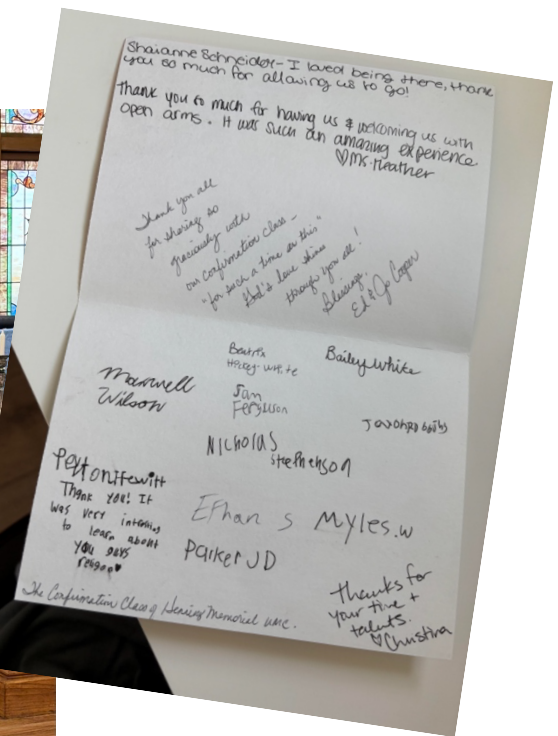 Shaianne Schneider - I loved being there, thank
you so much for allowing us to go!
thank you so much for having us & welcoming us with
open arms. It was such an amazing experience
♡Ms. Heather
Thank you all
for sharing so
graciously with
our confirmation class -
"for such a time as this"
God's love shines
through you all!
Blessings,
Ed & Jo Cooper
Beatrix
Bailey White
Maxwell
Wilson
Sam
Ferguson
Nicholas
Stephenson
Peyton Hewitt
Thank you! It
was very intersing
to learn about
you guys
religon♥
Ethan S
Myles.w
Parker JD
thanks for
your time +
talents.
♡Christina
The Confirmation Class of Memorial UMC.